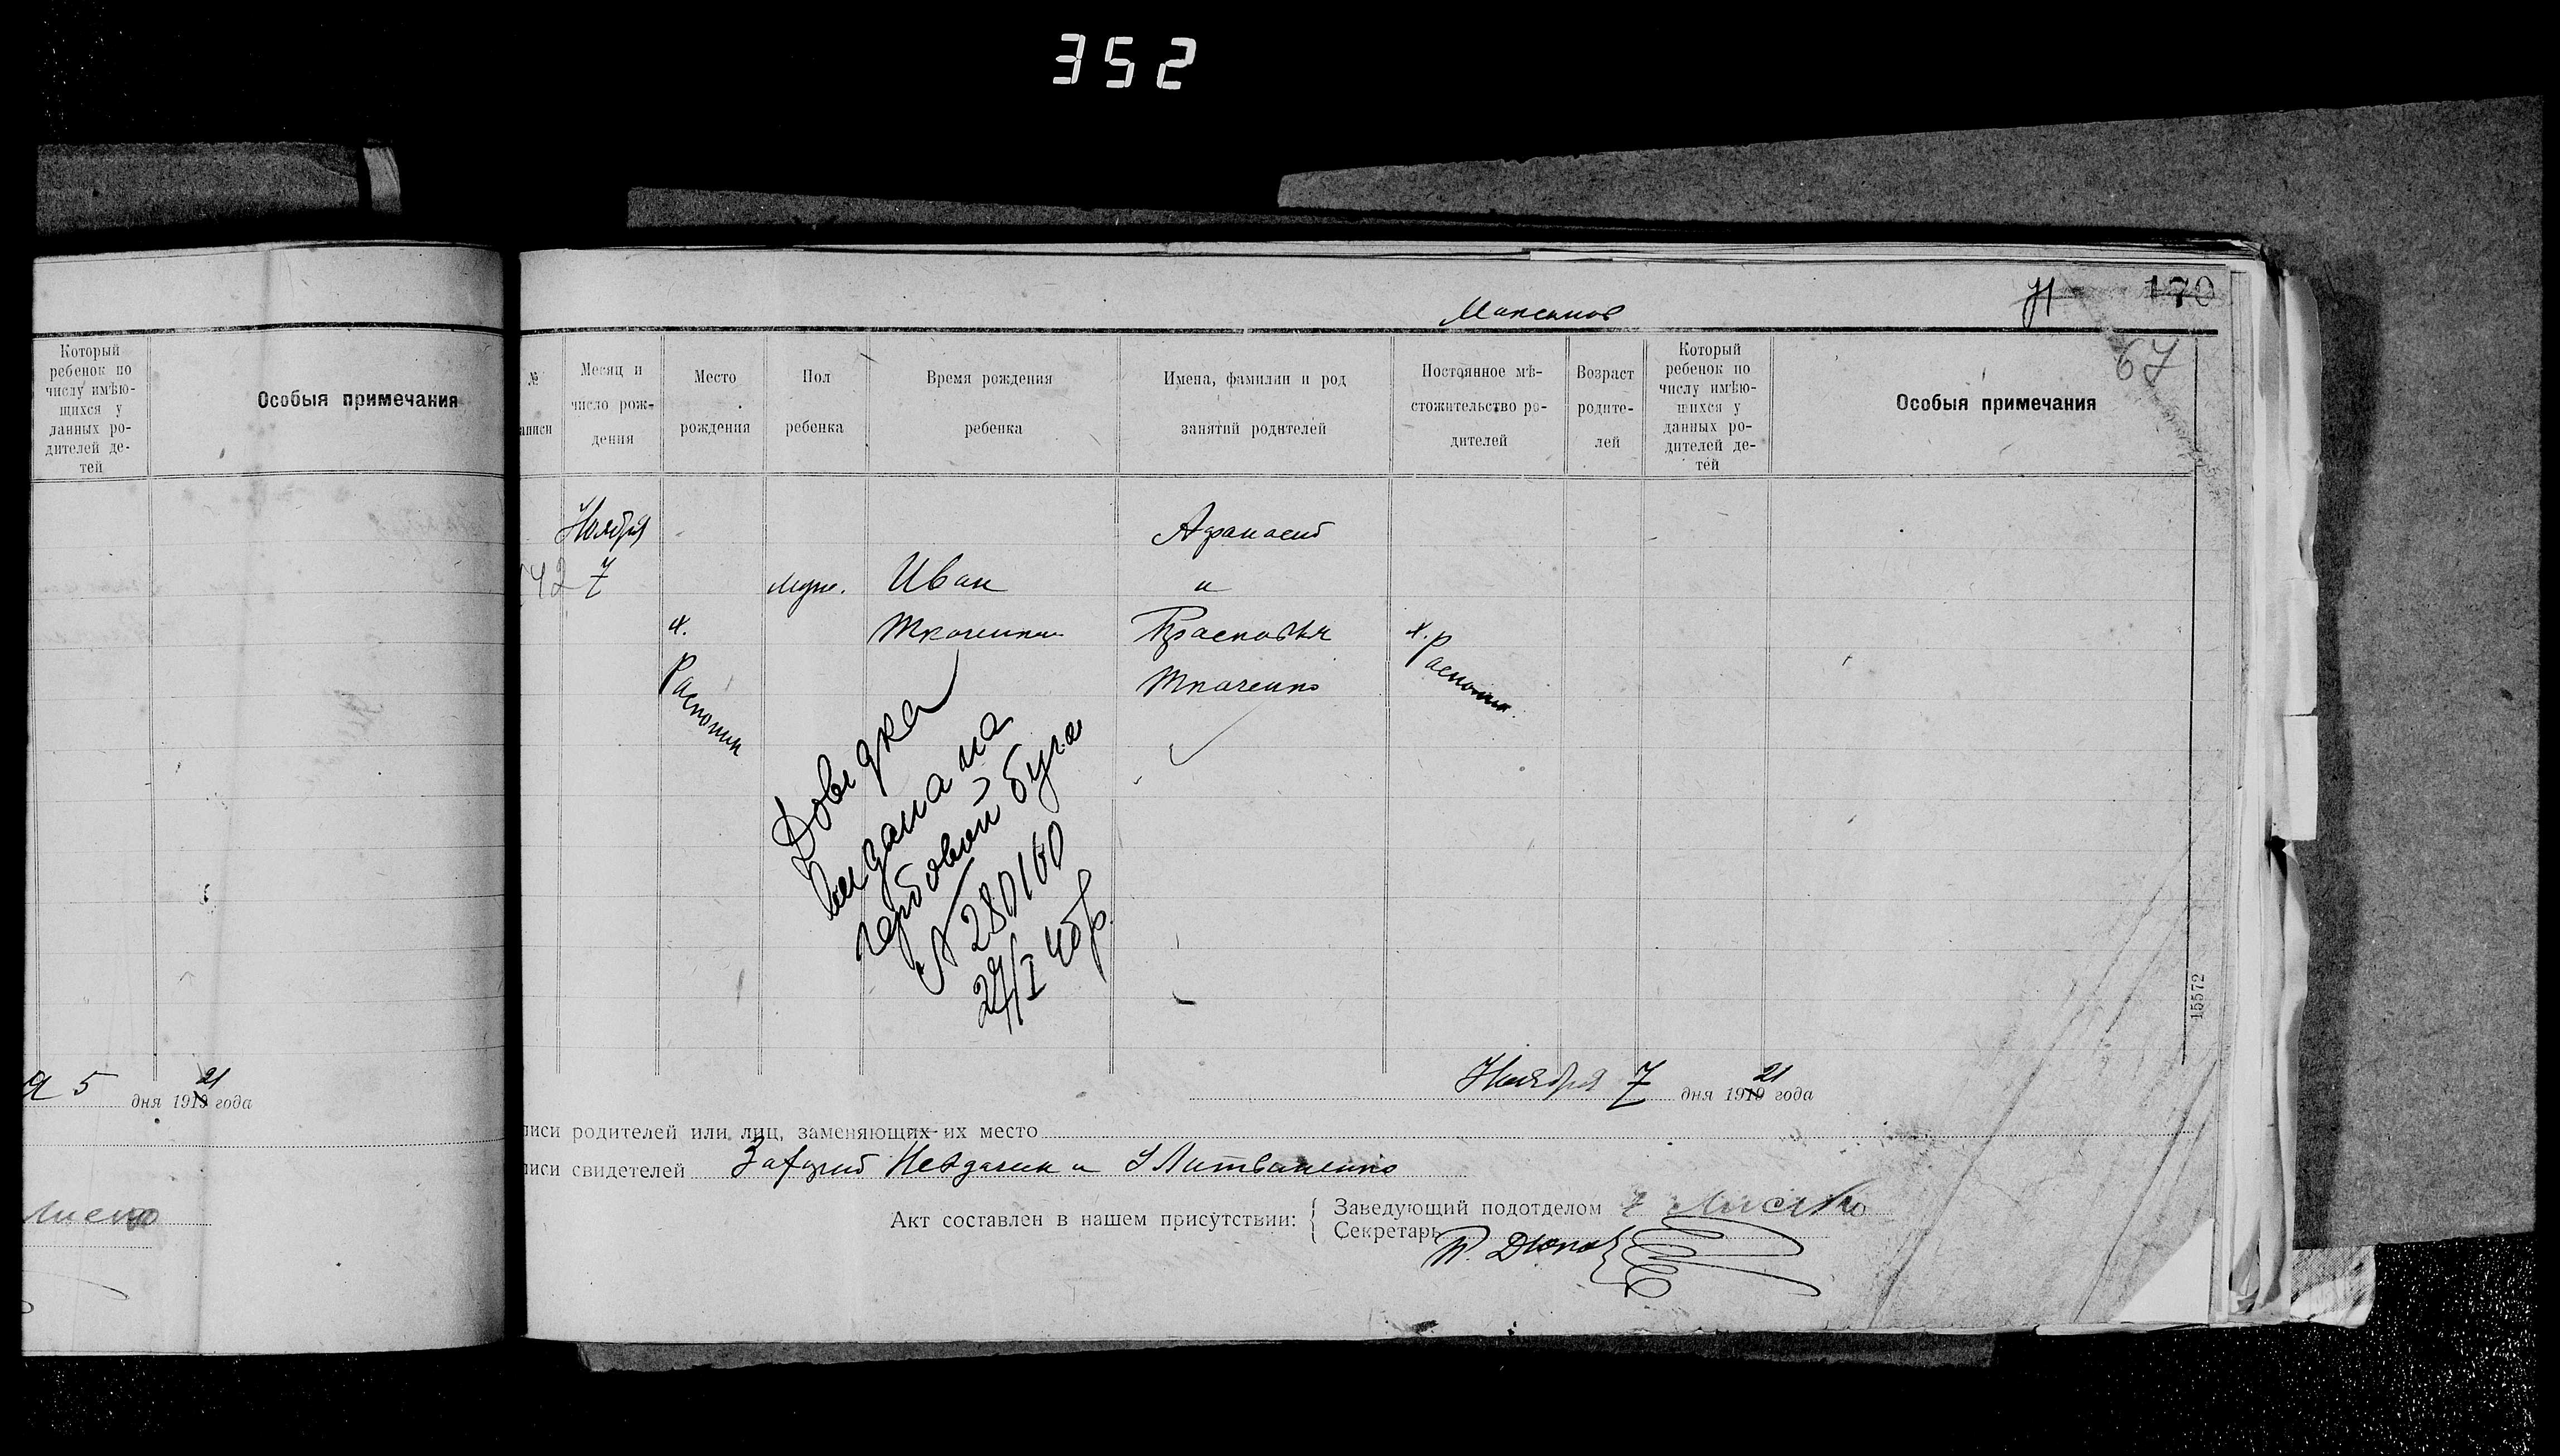 352
Который
ребенок по
числу имѣю-
щихся у
данных ро-
дителей де-
тей
Особыя примечания
я 5 дня 1919 21 года
170
67
№
аписи
Месяц и
число рож-
дения
Место
рождения
Пол
ребенка
Время рождения
ребенка
Имена, фамилии и род
занятий родителей
Постоянное мѣ-
стожительство ро-
дителей
Возраст
родите-
лей
Который
ребенок по
числу имѣю-
щихся у
данных ро-
дителей де-
тей
Особыя примечания
Ноября
Афанасий
42 7 Иван и
х.
Ткаченко
х.
Ткаченко
Довидка
видана на
гербовой
280160
15572
Ноября 7 дня 1919 21 года
писи родителей или лиц, заменяющих их место
писи свидетелей
Литвиненко
Акт составлен в нашем присутствии:
Заведующий подотделом
Секретарь